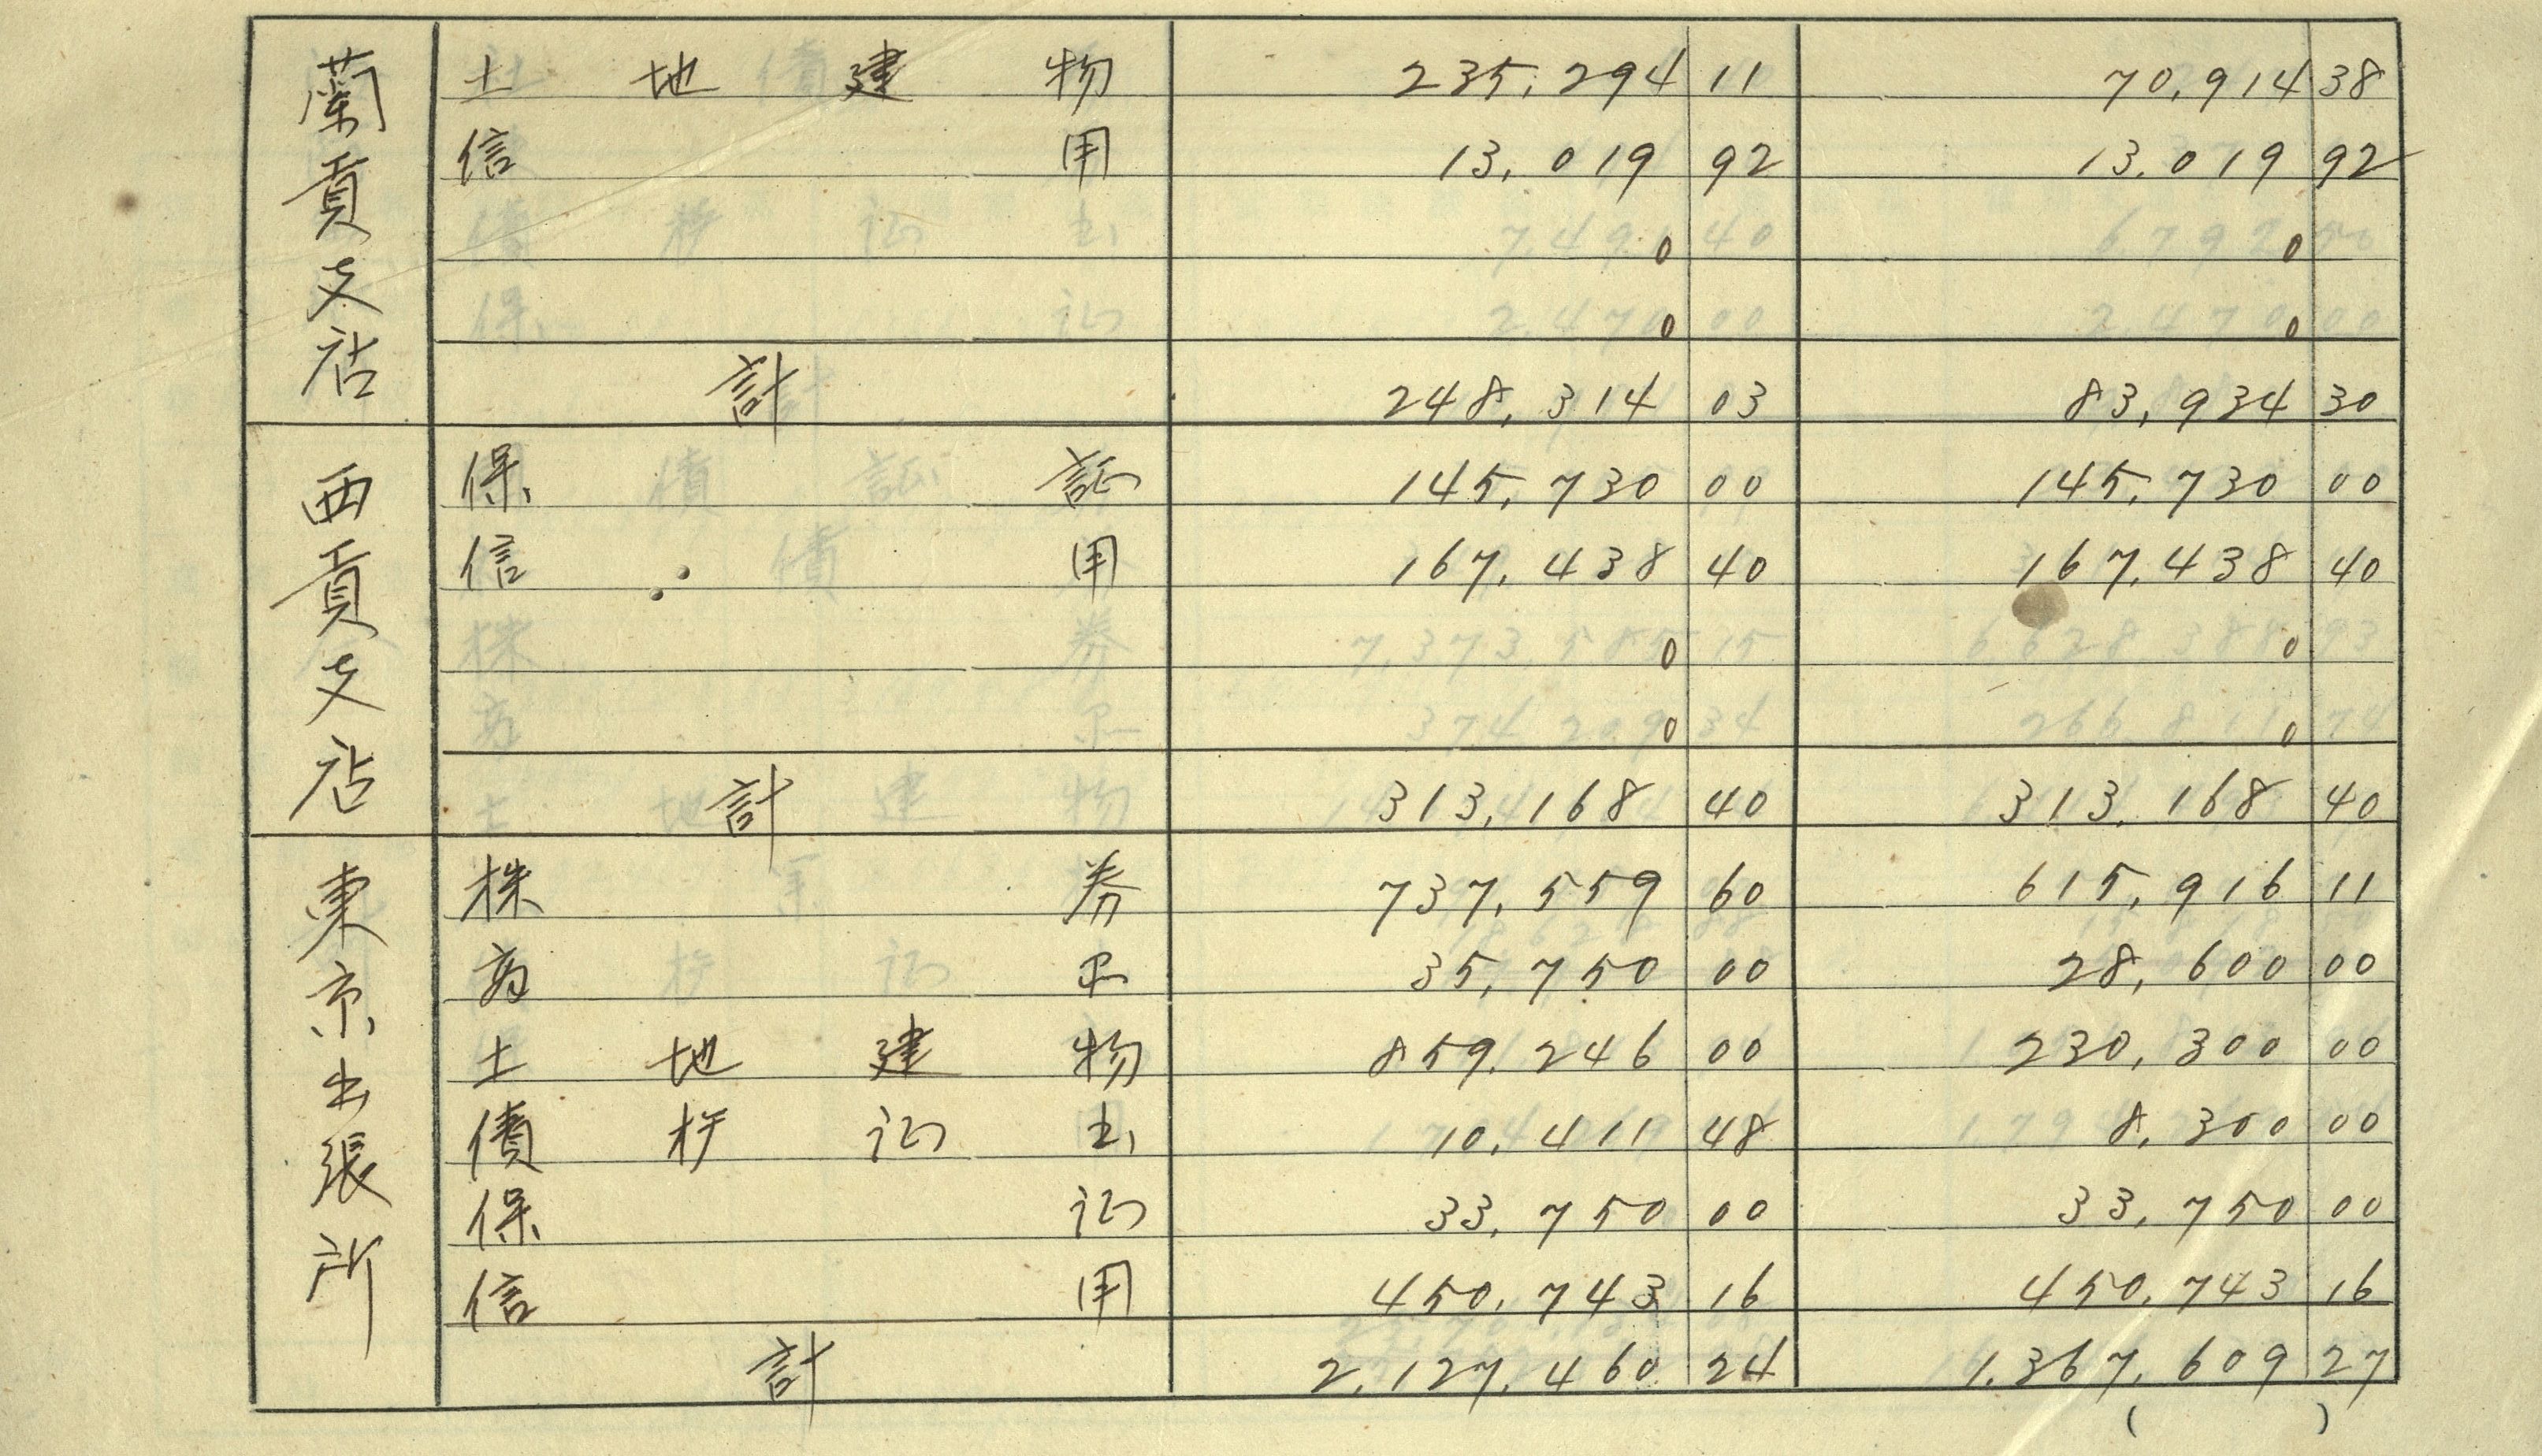 蘭貢支店
土地建物 235,294 11 70,914 38
信用 13,019 92 13,019 92
0 0
0 0
計 248,314 03 83,934 30
西貢支店
保証 145,730 00 145,730 00
信用 167,438 40 167,438 40
0 0
0 0
計 313,168 40 313,168 40
東京出張所
株券 737,559 60 615,916 11
商品 35,750 00 28,600 00
土地建物 859,246 00 230,300 00
債権証書 10,411 48 8,300 00
保証 33,750 00 33,750 00
信用 450,743 16 450,743 16
計 2,127,460 24 1,367,609 27
( )